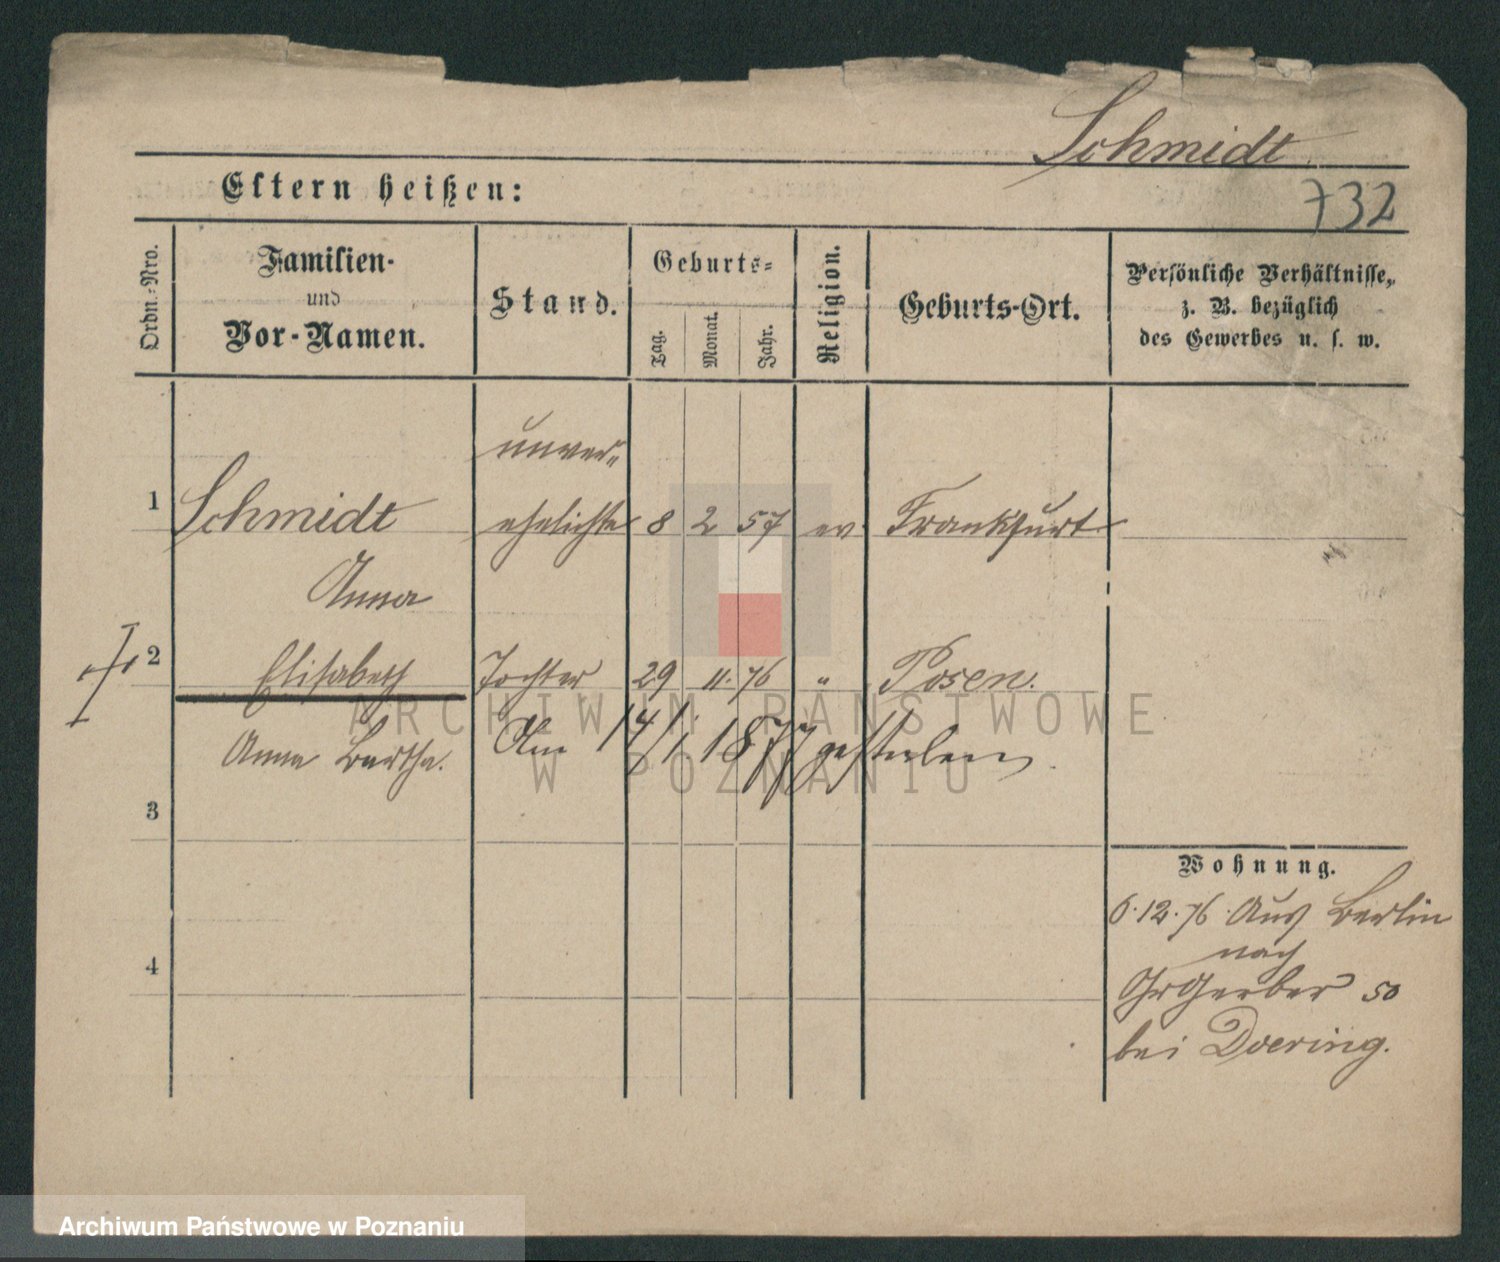 Schmidt
Eltern heißen:
732
Ordn.-Nro.
Familien-
und
Vor-Namen.
Stand.
Geburts-
Tag.
Monat.
Jahr.
Religion.
Geburts-Ort.
Persönliche Verhältnisse,
z. B. bezüglich
des Gewerbes u. s. w.
unver-
1 Schmidt ehelichte 8 2 57 ev. Frankfurt
Anna
2 Elisabeth Tochter 29 11. 76 " Posen.
Anna Bertha. Am 14/1. 1877 gestorben
3
4
Wohnung.
6.12.76. Aus Berlin
nach
Gr Gerber 50
bei Doering.
ARCHIWUM PAŃSTWOWE
W POZNANIU
Archiwum Państwowe w Poznaniu